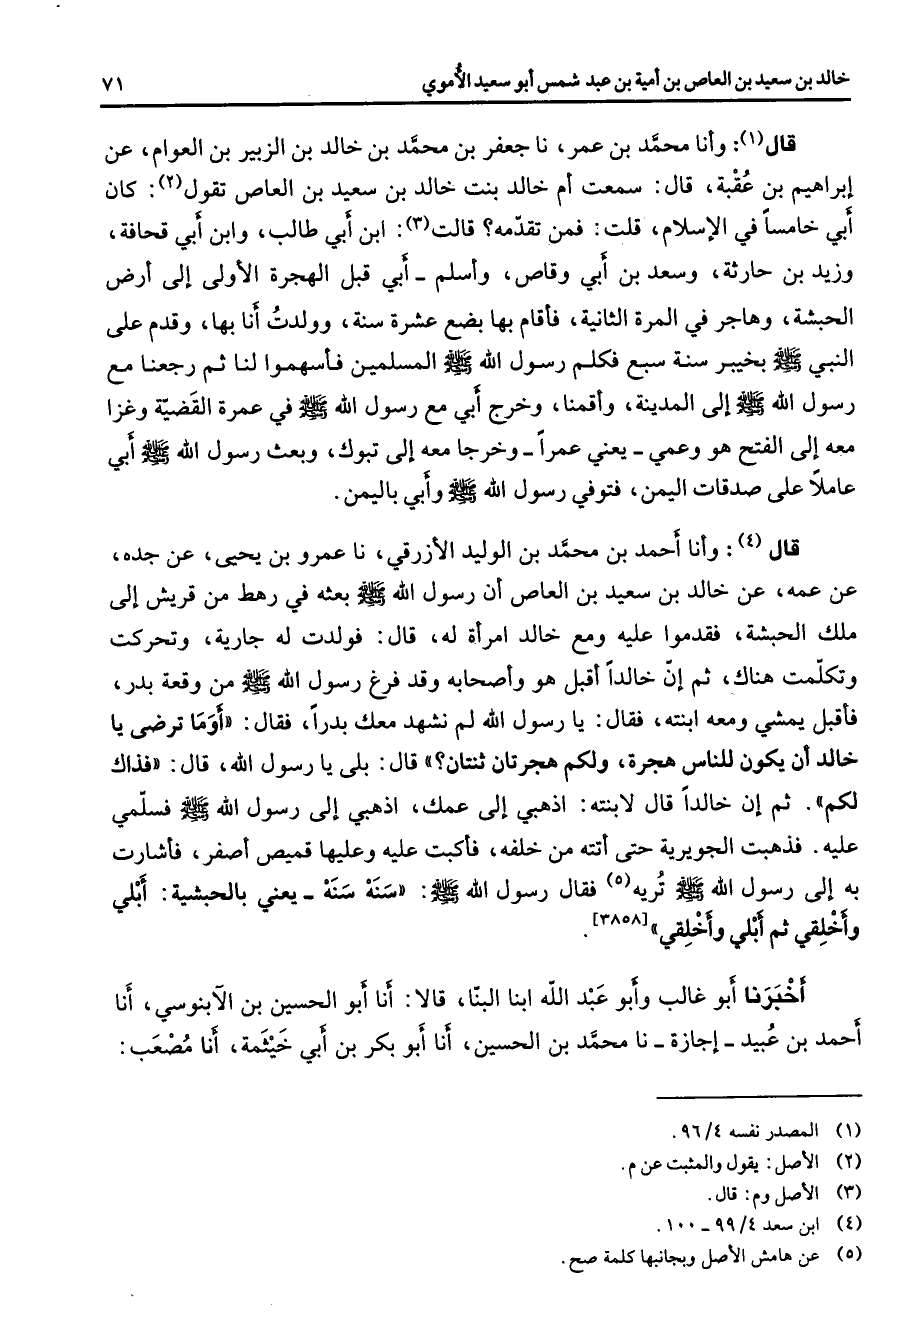 خالد بن سعيد بن العاص بن أمية بن عبد شمس أبو سعيد الأُموي ٧١
قال(١): وأنا محمَّد بن عمر، نا جعفر بن محمَّد بن خالد بن الزبير بن العوام، عن
إبراهيم بن عُقْبة، قال: سمعت أم خالد بنت خالد بن سعيد بن العاص تقول(٢): كان
أبي خامساً في الإسلام، قلت: فمن تقدّمه؟ قالت(٣): ابن أبي طالب، وابن أبي قحافة،
وزيد بن حارثة، وسعد بن أبي وقاص، وأسلم ـ أبي قبل الهجرة الأولى إلى أرض
الحبشة، وهاجر في المرة الثانية، فأقام بها بضع عشرة سنة، وولدتُ أنا بها، وقدم على
النبي ﷺ بخيبر سنة سبع فكلم رسول الله ﷺ المسلمين فأسهموا لنا ثم رجعنا مع
رسول الله ﷺ إلى المدينة، وأقمنا، وخرج أبي مع رسول الله ﷺ في عمرة القَضيّة وغزا
معه إلى الفتح هو وعمي ـ يعني عمراً ـ وخرجا معه إلى تبوك، وبعث رسول الله ﷺ أبي
عاملاً على صدقات اليمن، فتوفي رسول الله ﷺ وأبي باليمن.
قال (٤): وأنا أحمد بن محمَّد بن الوليد الأزرقي، نا عمرو بن يحيى، عن جده،
عن عمه، عن خالد بن سعيد بن العاص أن رسول الله ﷺ بعثه في رهط من قريش إلى
ملك الحبشة، فقدموا عليه ومع خالد امرأة له، قال: فولدت له جارية، وتحركت
وتكلّمت هناك، ثم إنّ خالداً أقبل هو وأصحابه وقد فرغ رسول الله ﷺ من وقعة بدر،
فأقبل يمشي ومعه ابنته، فقال: يا رسول الله لم نشهد معك بدراً، فقال: «أَوَمَا ترضى يا
خالد أن يكون للناس هجرة، ولكم هجرتان ثنتان؟» قال: بلى يا رسول الله، قال: «فذاك
لكم». ثم إن خالداً قال لابنته: اذهبي إلى عمك، اذهبي إلى رسول الله ﷺ فسلّمي
عليه. فذهبت الجويرية حتى أتته من خلفه، فأكبت عليه وعليها قميص أصفر، فأشارت
به إلى رسول الله ﷺ تُريه(٥) فقال رسول الله ﷺ: «سَنَهْ سَنَهْ ـ يعني بالحبشية: أَبْلي
وأَخْلِقي ثم أَبْلي وأَخْلِقي»[٣٨٥٨].
أَخْبَرَنا أبو غالب وأبو عَبْد اللّه ابنا البنّا، قالا: أنا أبو الحسين بن الآبنوسي، أنا
أحمد بن عُبيد ـ إجازة ـ نا محمَّد بن الحسين، أنا أبو بكر بن أبي خَيْثَمة، أنا مُصْعَب:
(١) المصدر نفسه ٤/ ٩٦.
(٢) الأصل: يقول والمثبت عن م.
(٣) الأصل وم: قال.
(٤) ابن سعد ٤/ ٩٩ ـ ١٠٠.
(٥) عن هامش الأصل وبجانبها كلمة صح.